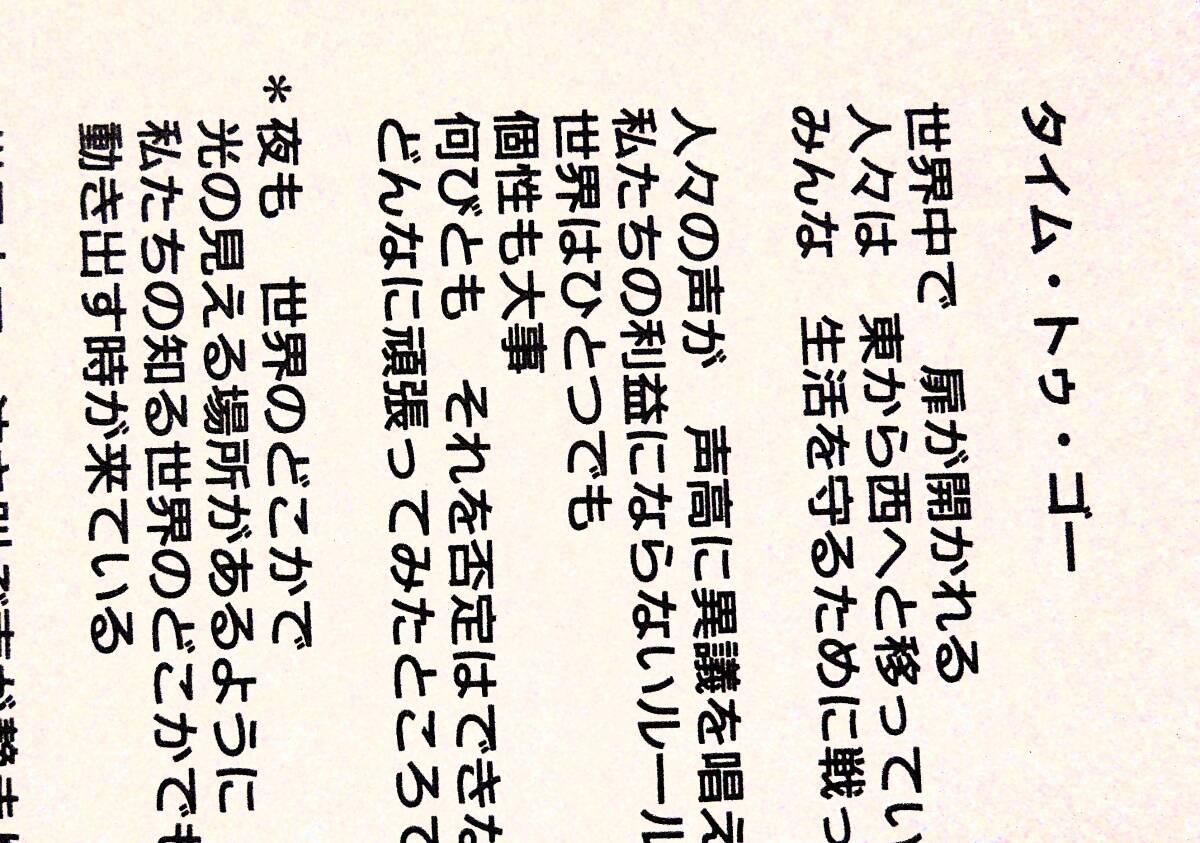 タイム・トゥ・ゴー
世界中で 扉が開かれる
人々は 東から西へと移ってい
みんな 生活を守るために戦っ
人々の声が 声高に異議を唱え
私たちの利益にならないルール
世界はひとつでも
個性も大事
何びとも それを否定はできな
どんなに頑張ってみたところで
*夜も 世界のどこかで
光の見える場所があるように
私たちの知る世界のどこかでも
動き出す時が来ている